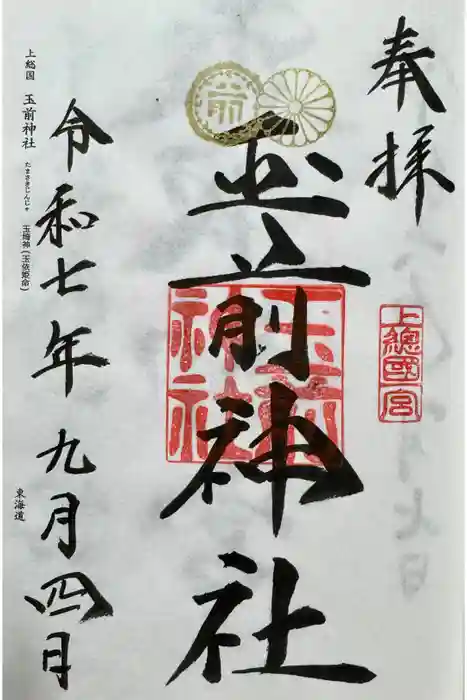 奉拝
上總國一宮
前
玉前神社
玉前神社
令和七年九月四日
上総国 玉前神社 たまさきじんじゃ 玉埼神(玉依姫命)
東海道